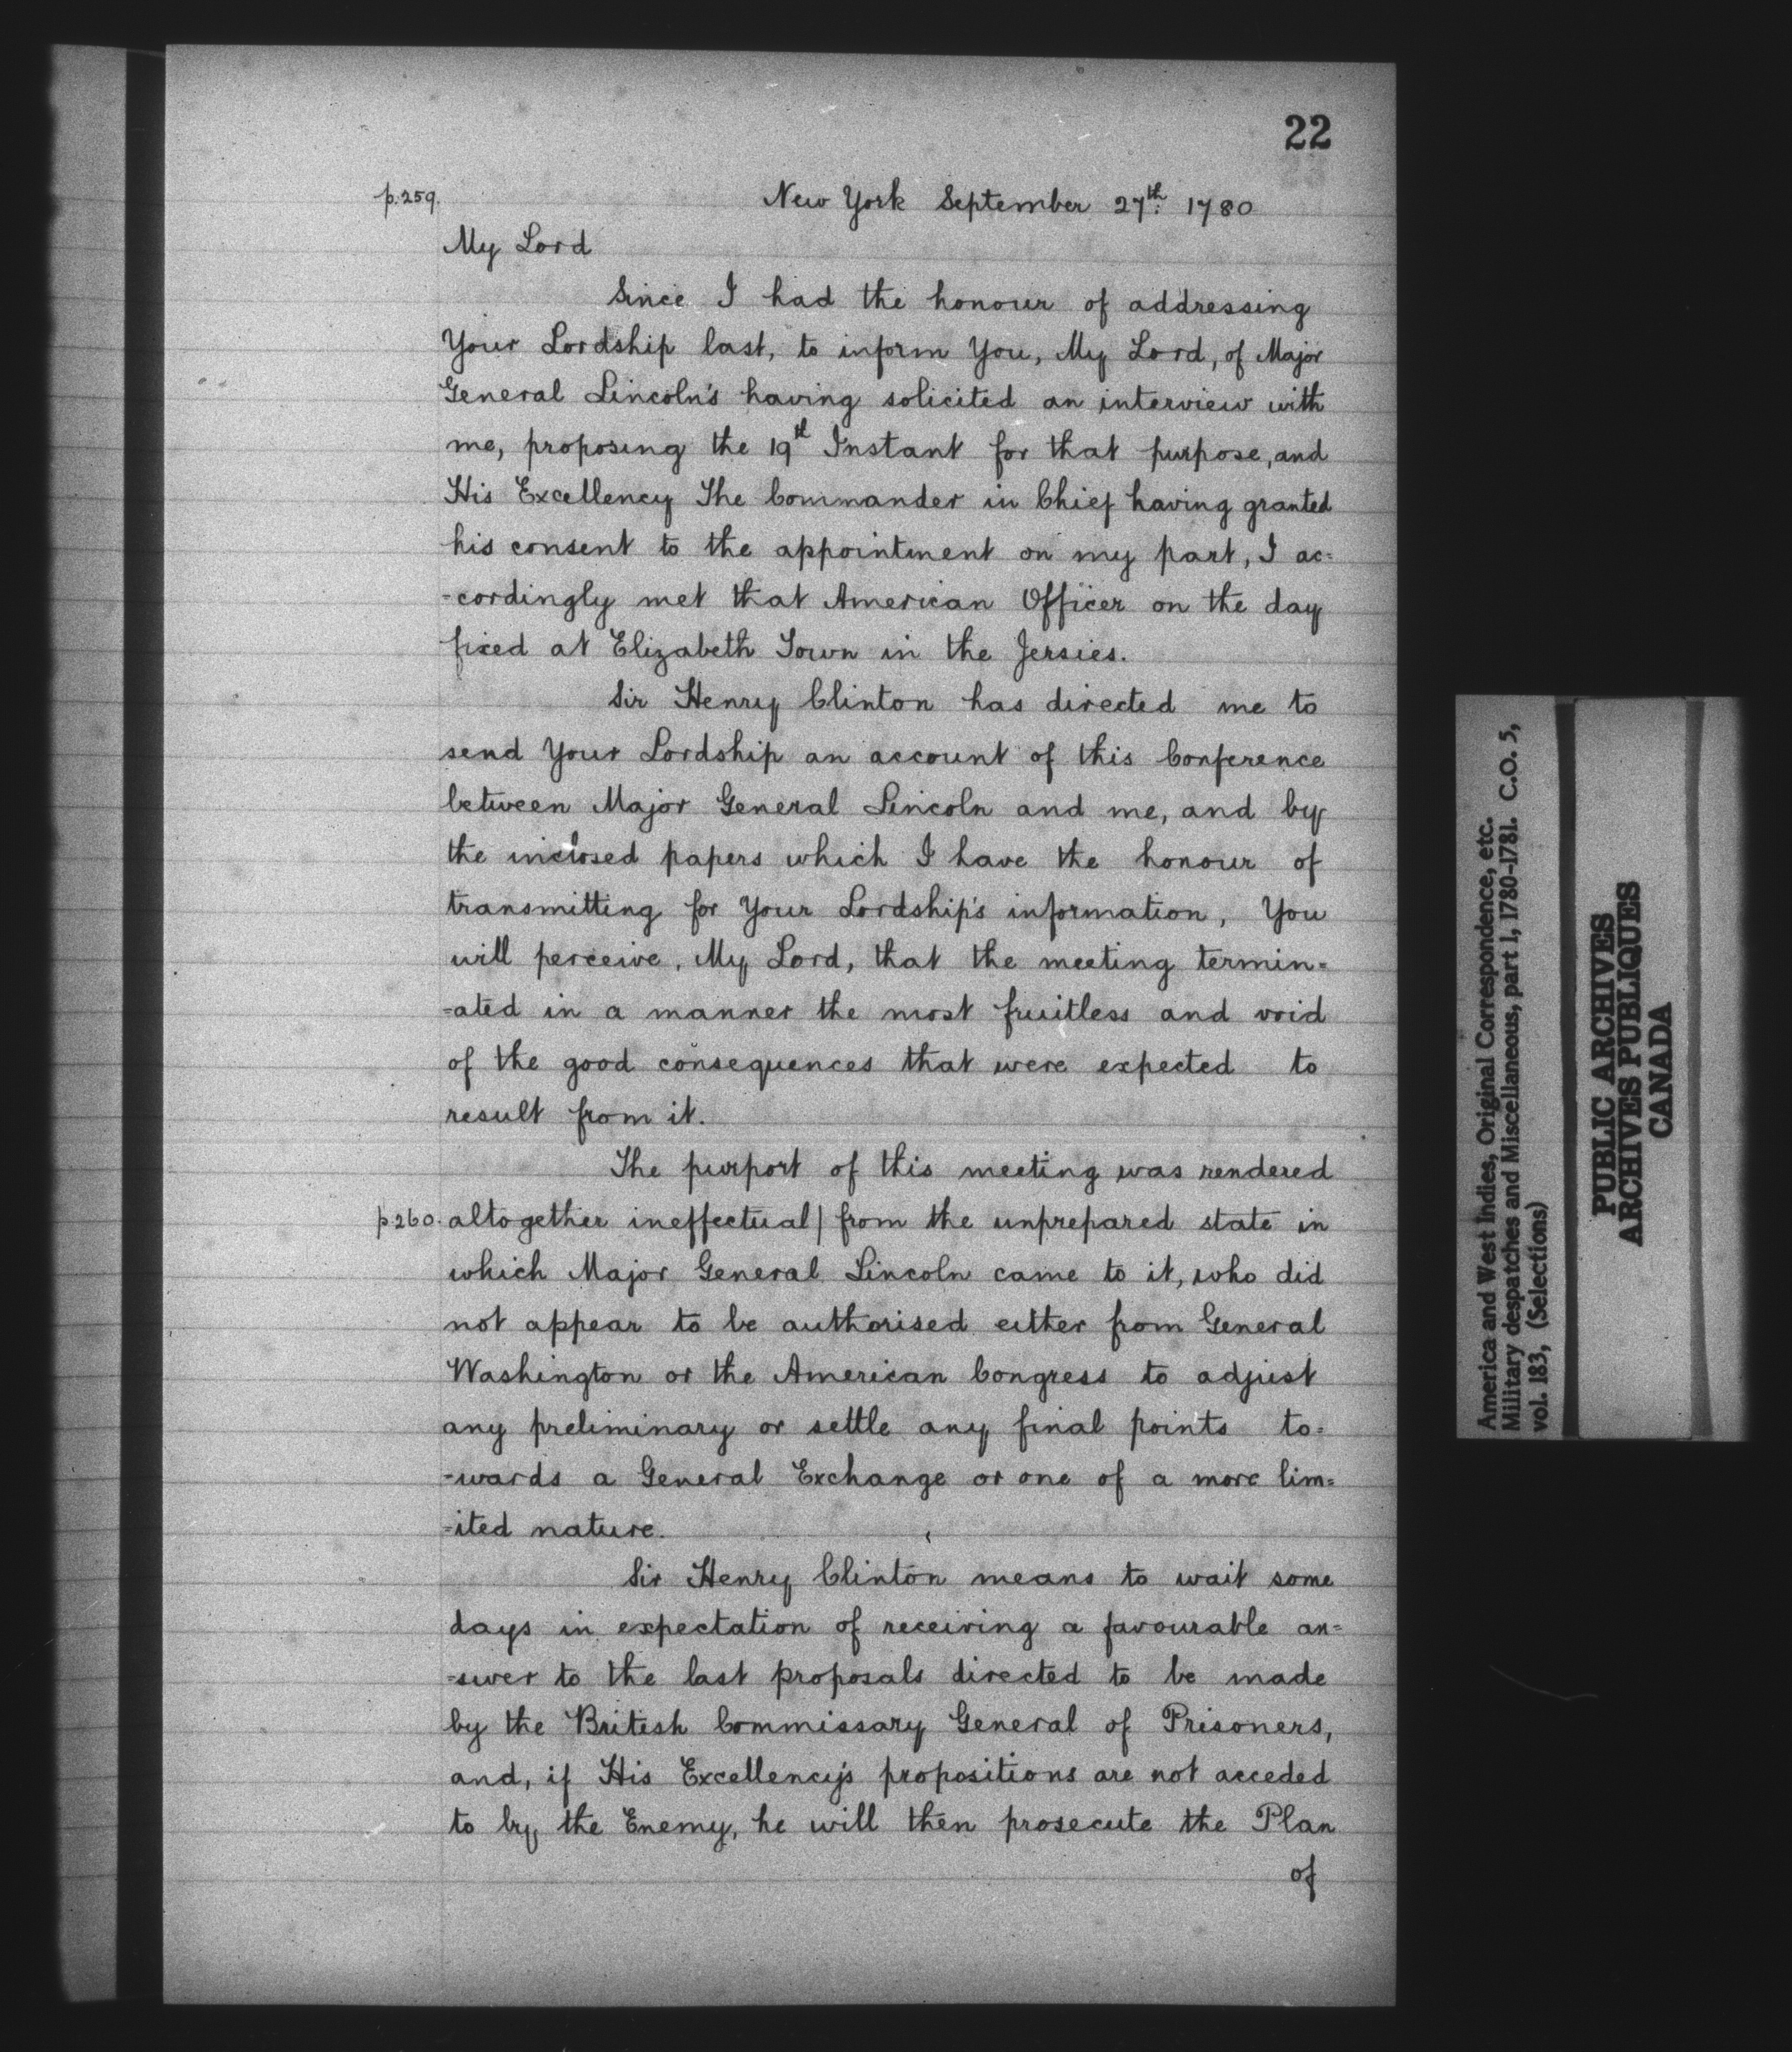 22
p.259. New York September 27th. 1780
My Lord
Since I had the honour of addressing
Your Lordship last, to inform You, My Lord, of Major
General Lincoln's having solicited an interview with
me, proposing the 19th Instant for that purpose, and
His Excellency The Commander in Chief having granted
his consent to the appointment on my part, I ac=
=cordingly met that American Officer on the day
fixed at Elizabeth Town in the Jersies.
Sir Henry Clinton has directed me to
send Your Lordship an account of this Conference
between Major General Lincoln and me, and by
the inclosed papers which I have the honour of
transmitting for Your Lordship's information, You
will perceive, My Lord, that the meeting termin=
=ated in a manner the most fruitless and void
of the good consequences that were expected to
result from it.
The purport of this meeting was rendered
p.260. altogether ineffectual | from the unprepared state in
which Major General Lincoln came to it, who did
not appear to be authorised either from General
Washington or the American Congress to adjust
any preliminary or settle any final points to=
=wards a General Exchange or one of a more lim=
=ited nature.
Sir Henry Clinton means to wait some
days in expectation of receiving a favourable an=
=swer to the last proposals directed to be made
by the British Commissary General of Prisoners,
and, if His Excellency's propositions are not acceded
to by the Enemy, he will then prosecute the Plan
of
America and West Indies, Original Correspondence, etc.
Military despatches and Miscellaneous, part 1, 1780-1781. C.O. 5,
vol. 183, (Selections)
PUBLIC ARCHIVES
ARCHIVES PUBLIQUES
CANADA